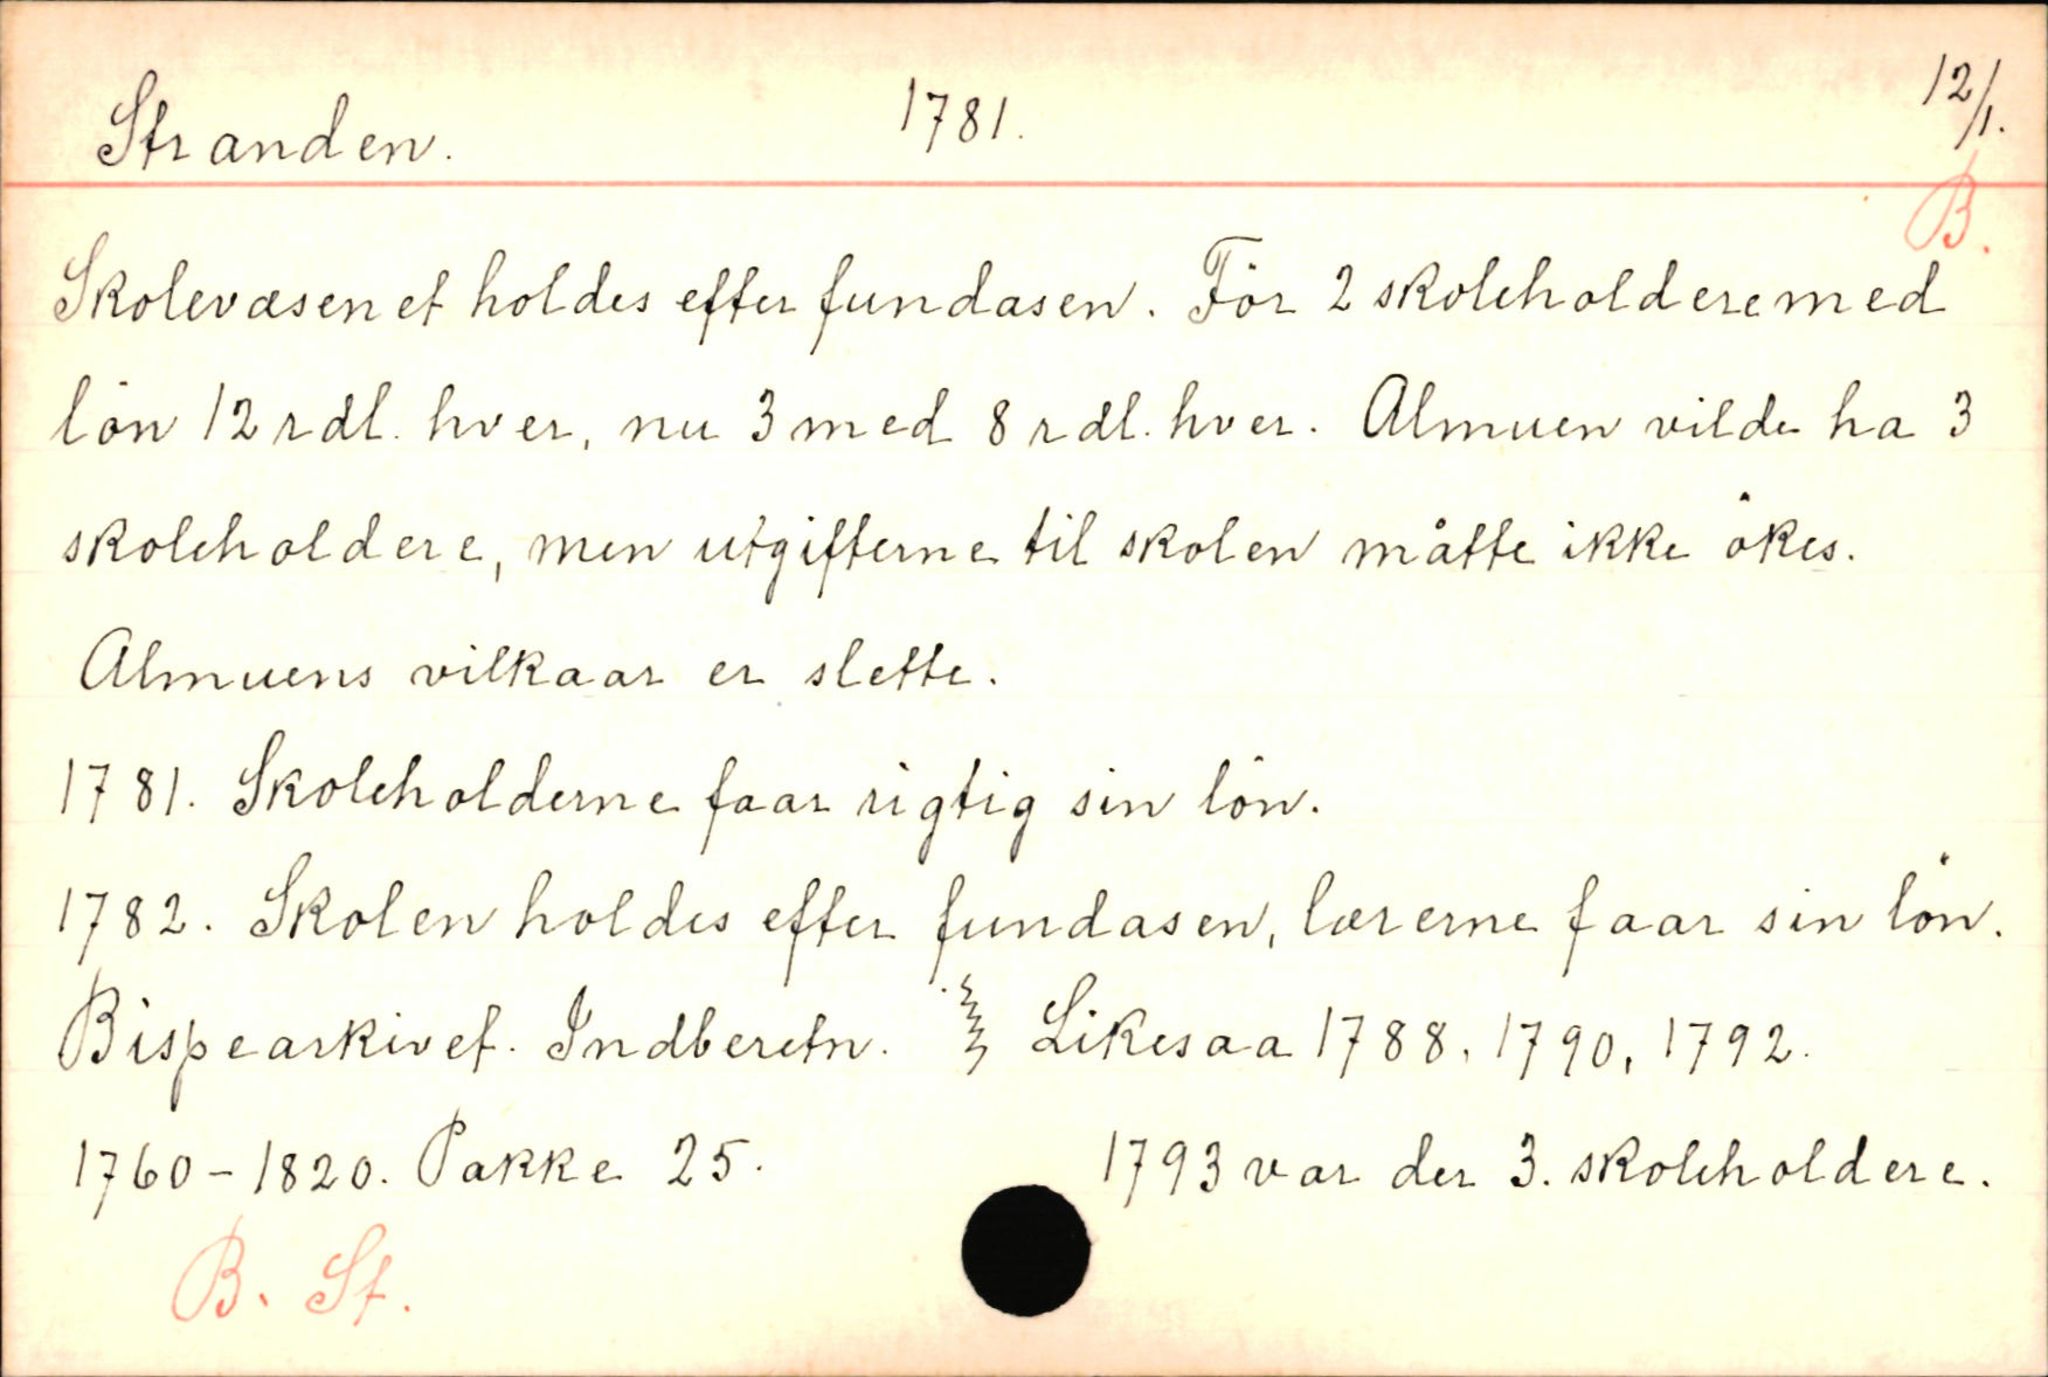 Stranden. 1781. 12/1.
B.
Skolevæsenet holdes efter fundasen. För 2 skoleholdere med
lön 12 rdl. hver, nu 3 med 8 rdl. hver. Almuen vilde ha 3
skoleholdere, men utgifterne til skolen måtte ikke ökes.
Almuens vilkaar er slette.
1781. Skoleholderne faar rigtig sin lön.
1782. Skolen holdes efter fundasen, lærerne faar sin lön.
Bispearkivet. Indberetn. Likesaa 1788, 1790, 1792.
1760-1820. Pakke 25. 1793 var der 3. skoleholdere.
B. St.